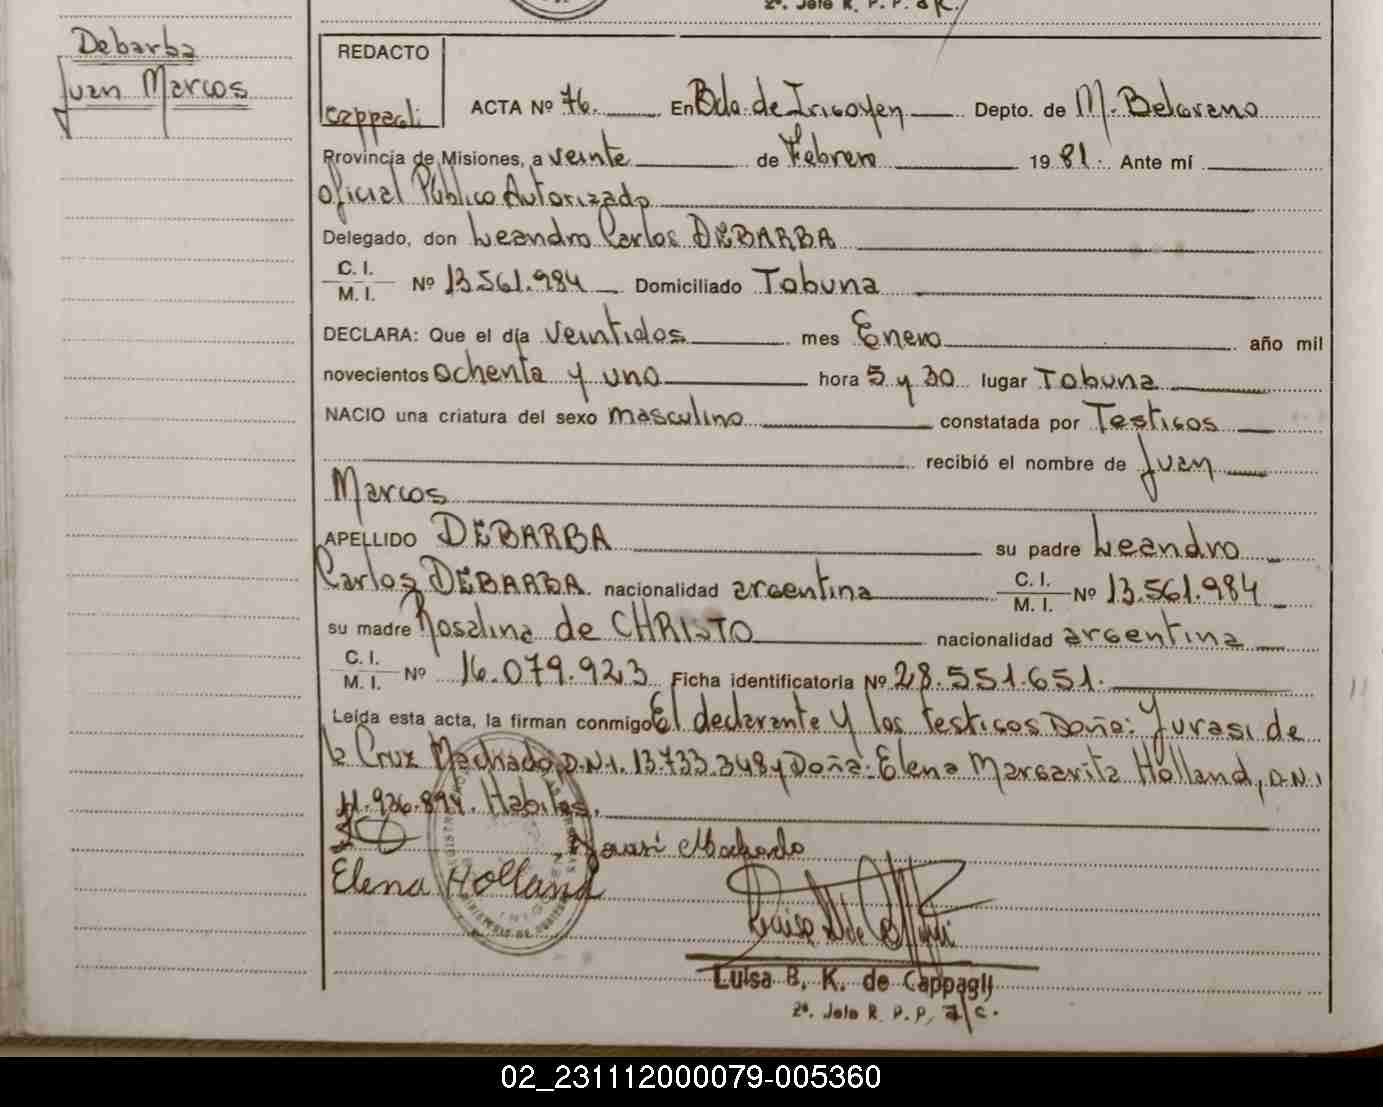 2º. Jefe R. P. P. a/c.
Debarba
Juan Marcos
REDACTO
cappagli
ACTA Nº 76. En Bdo. de Irigoyen Depto. de M. Belgrano
Provincia de Misiones, a veinte de Febrero 1981. Ante mí
oficial Público Autorizado
Delegado, don Leandro Carlos DEBARBA
C. I.
M. I. Nº 13.561.984 Domiciliado Tobuna
DECLARA: Que el día veintidos mes Enero año mil
novecientos ochenta y uno hora 5 y 30 lugar Tobuna
NACIO una criatura del sexo masculino constatada por Testigos
recibió el nombre de Juan
Marcos
APELLIDO DEBARBA su padre Leandro
Carlos DEBARBA. nacionalidad argentina C. I. M. I. Nº 13.561.984
su madre Rosalina de CHRISTO nacionalidad argentina
C. I.
M. I. Nº 16.079.923 Ficha identificatoria Nº 28.551.651.
Leída esta acta, la firman conmigo El declarante y los testigos Doña: Yurasi de
la Cruz Machado, D.N.I. 13.733.348 y Doña: Elena Margarita Holland, D.N.I
11.926.894. Habiles.
Yurasi Machado
Elena Holland
Luisa B. K. de Cappagli
2º. Jefe R. P. P. a/c.
02_231112000079-005360